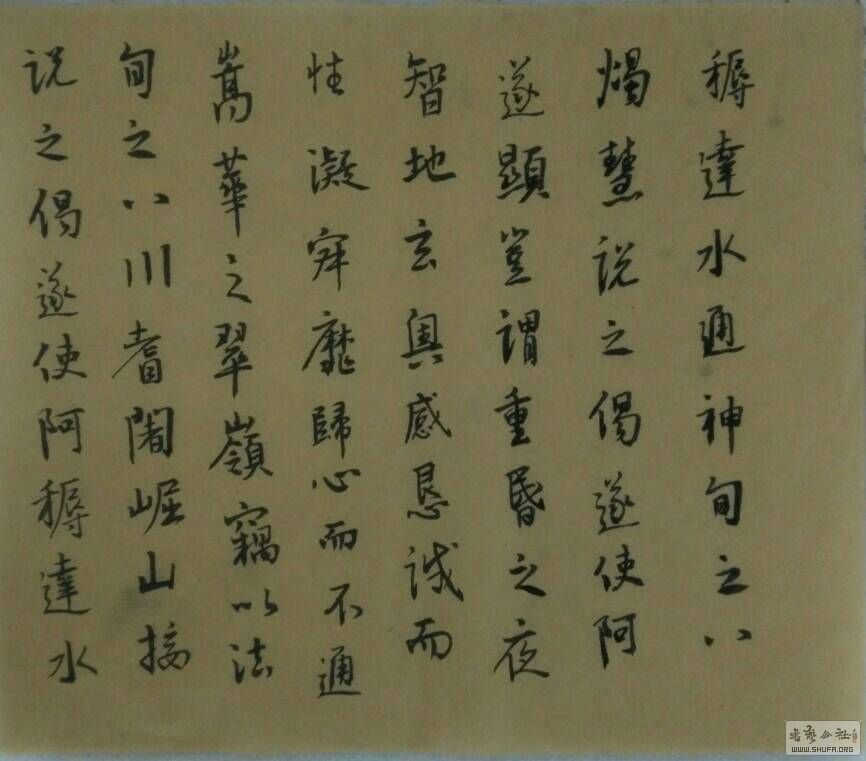 耨達水通神旬之八
燭慧説之偈遂使阿
遂顯豈謂重昏之夜
智地玄奧感恳誠而
性凝寂靡歸心而不通
嵩華之翠嶺竊以法
旬之八川耆闍崛山接
説之偈遂使阿耨達水
书艺公社
WWW.SHUFA.ORG